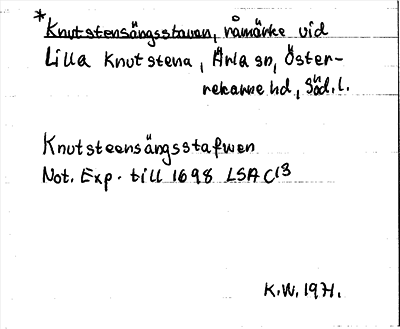 *Knutstensängsstavan, råmärke vid
Lilla Knutstena, Ärla sn, Öster-
rekarne hd, Söd. l.
Knutsteensängsstafwen
Not. Exp. till 1698 LSA C13
K.W. 1971.